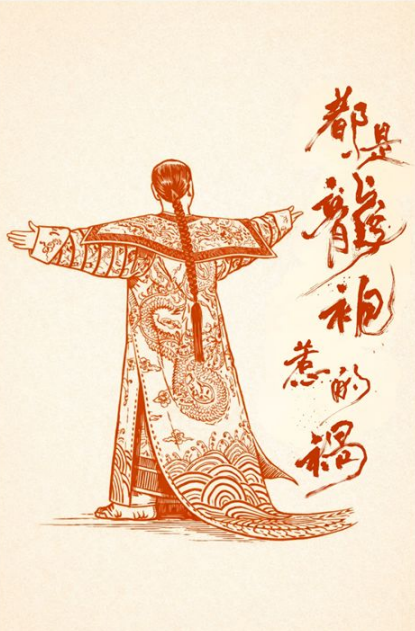 都是龍袍惹的禍